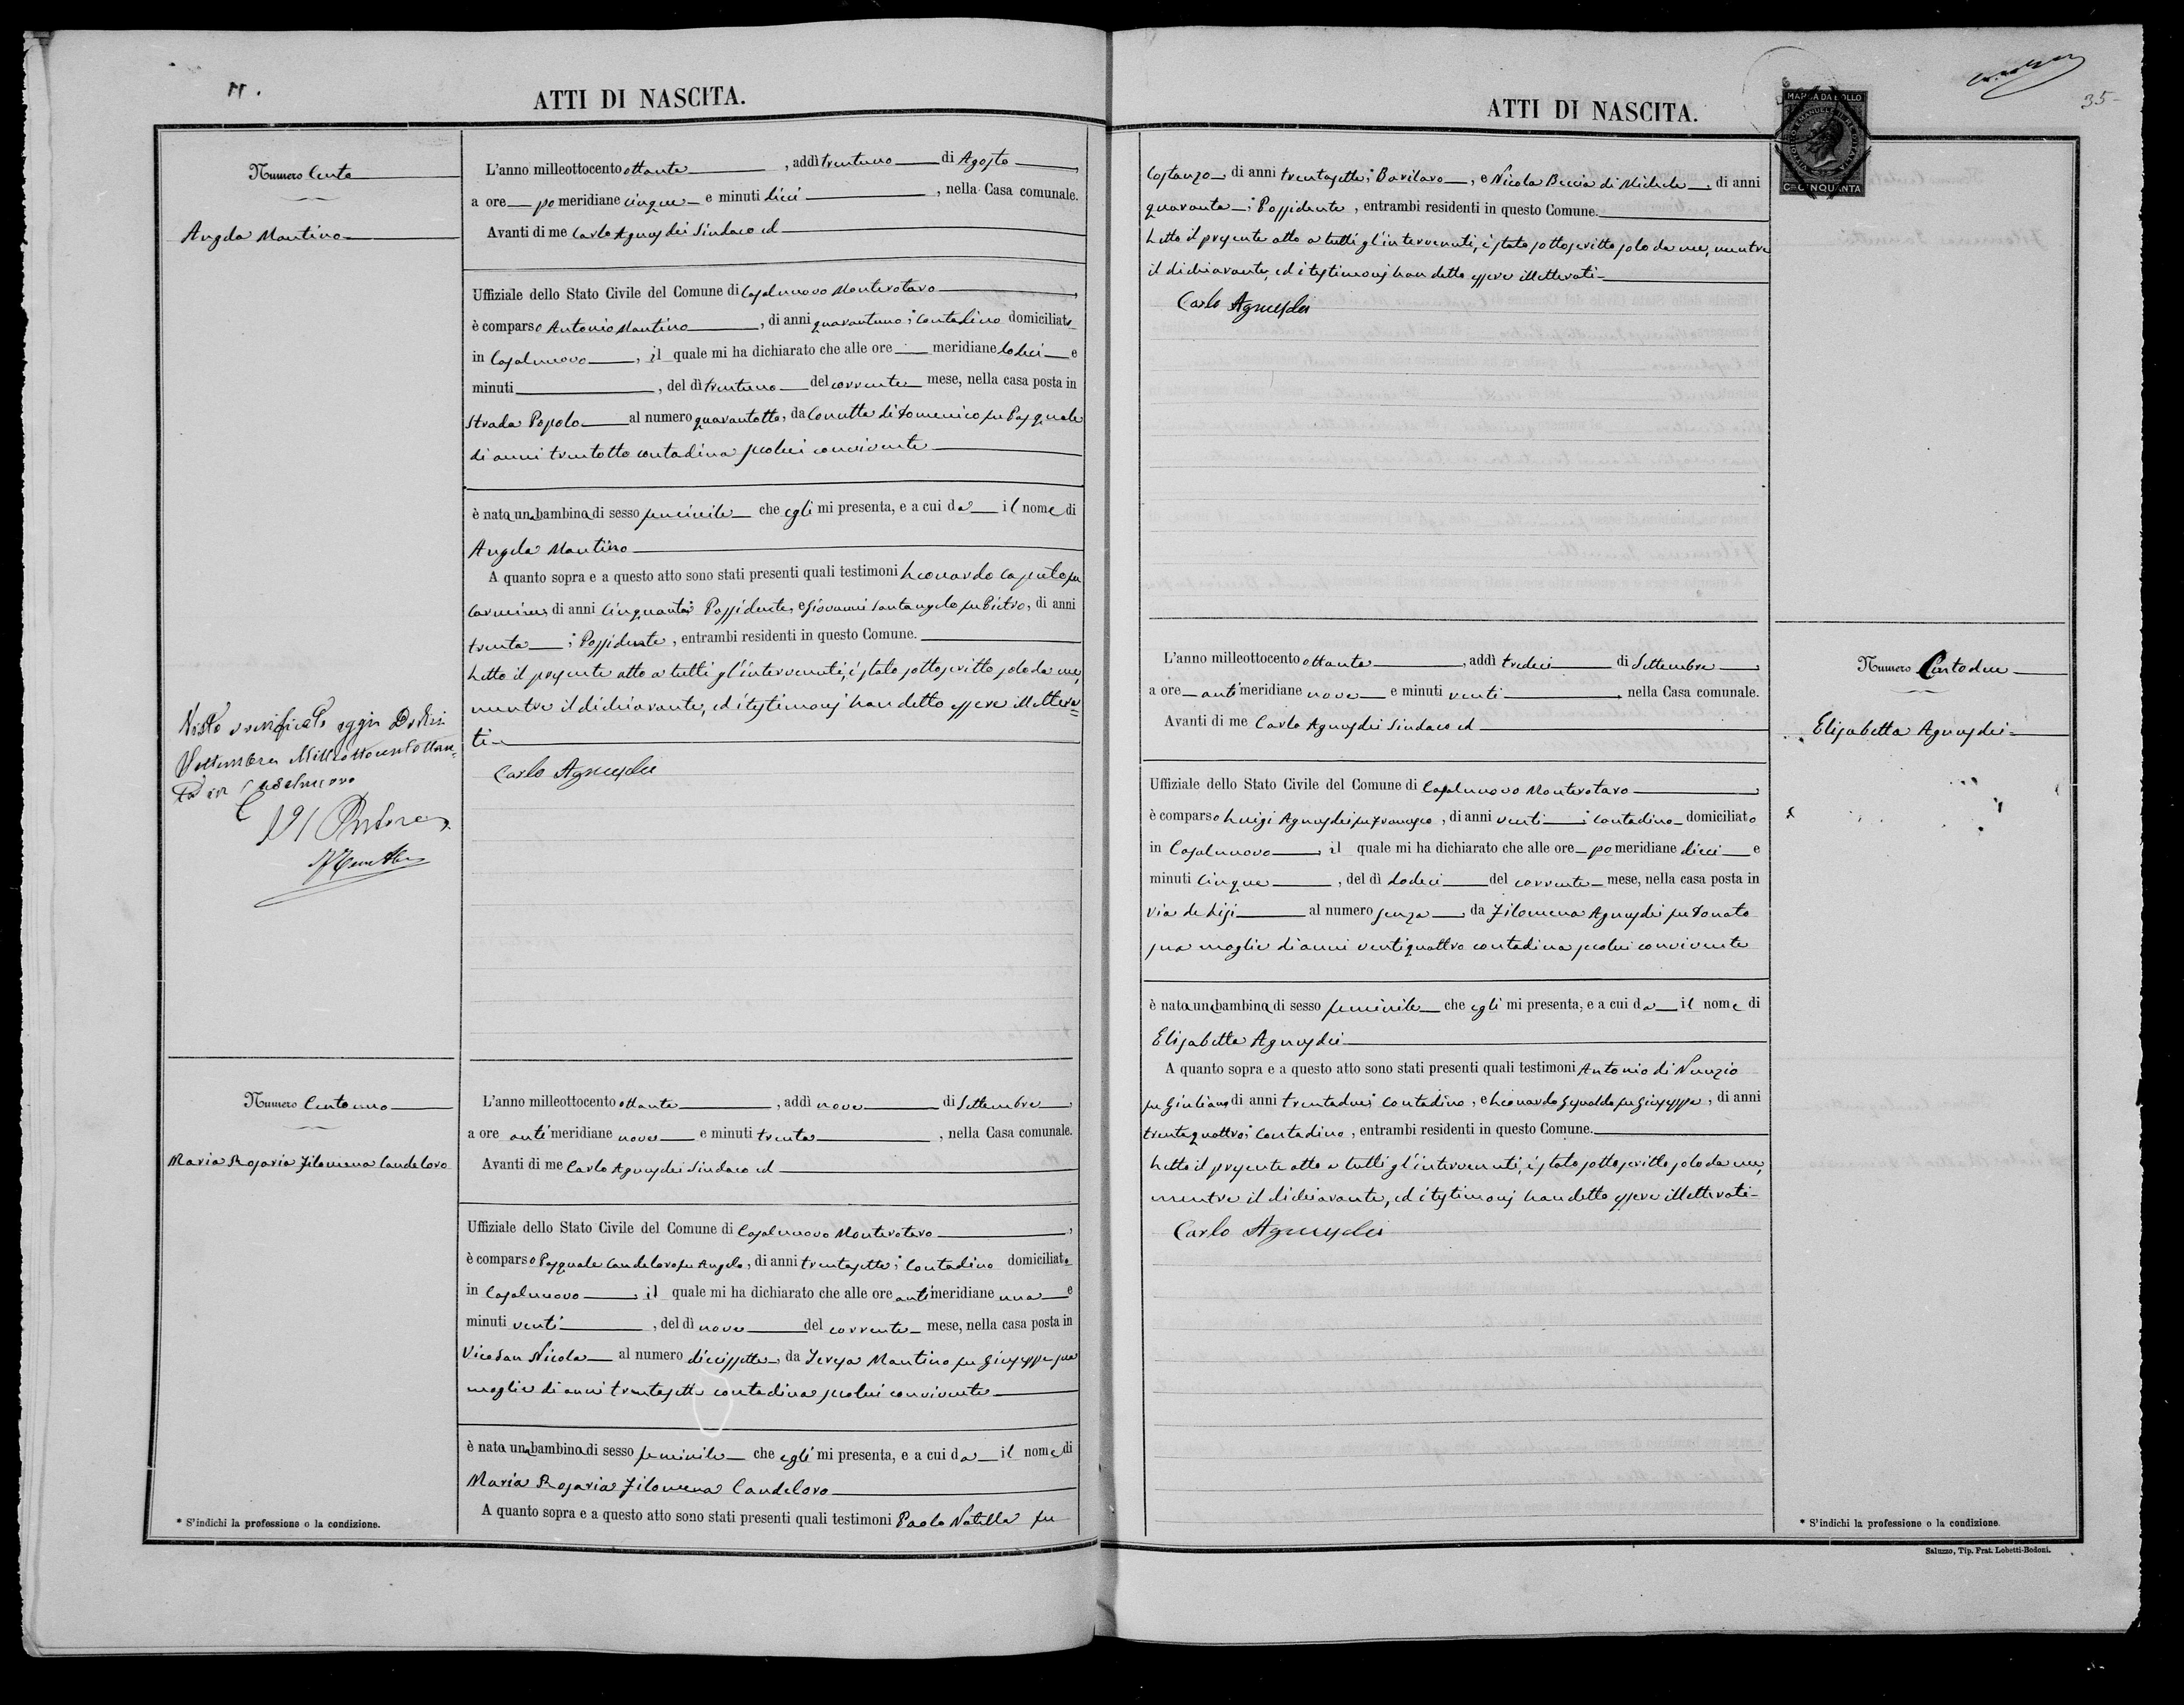 ATTI DI NASCITA.
Numero Cento
Angela Mantino
L'anno milleottocento ottanta, addì trentuno di Agosto
a ore pomeridiane cinque e minuti dieci, nella Casa comunale.
Avanti di me Carlo Agnusdei Sindaco ed
Uffiziale dello Stato Civile del Comune di Casalnuovo Monterotaro,
è comparso Antonio Mantino, di anni quarantuno; Contadino domiciliato
in Casalnuovo, il quale mi ha dichiarato che alle ore meridiane dodici e
minuti, del dì trentuno del corrente mese, nella casa posta in
Strada Popolo al numero quarantotto, da Concetta di Domenico fu Pasquale
di anni trentotto contadina secolui convivente
è nata una bambina di sesso feminile che egli mi presenta, e a cui da il nome di
Angela Mantino
A quanto sopra e a questo atto sono stati presenti quali testimoni Leonardo Caputo fu
Carmine, di anni Cinquanta; Possidente, e Giovanni Santangelo fu Pietro, di anni
trenta; Possidente, entrambi residenti in questo Comune.
Letto il presente atto a tutti gl'intervenuti, è stato sottoscritto solo da me,
mentre il dichiarante, ed i testimonj han detto essere illettera=
ti
Carlo Agnusdei
Visto e verificato oggi Dodici
Settembre Milleottocentottan-
ta in Casalnuovo
Il Pretore
Numero Centouno
Maria Rosaria Filomena Candeloro
L'anno milleottocento ottanta, addì nove di Settembre,
a ore antimeridiane nove e minuti trenta, nella Casa comunale.
Avanti di me Carlo Agnusdei Sindaco ed
Uffiziale dello Stato Civile del Comune di Casalnuovo Monterotaro,
è comparso Pasquale Candeloro fu Angelo, di anni trentasette; Contadino domiciliato
in Casalnuovo, il quale mi ha dichiarato che alle ore antimeridiane una e
minuti venti, del dì nove del corrente mese, nella casa posta in
Vico San Nicola al numero diecissette, da Teresa Mantino fu Giuseppe sua
moglie di anni trentasette contadina secolui convivente
è nata una bambina di sesso feminile che egli mi presenta, e a cui da il nome di
Maria Rosaria Filomena Candeloro
A quanto sopra e a questo atto sono stati presenti quali testimoni Paolo Natilla fu
* S'indichi la professione o la condizione.
ATTI DI NASCITA.
35
MARCA DA BOLLO
CI CINQUANTA
Costanzo, di anni trentasette; Barilaro, e Nicola Beccia di Michele, di anni
quaranta; Possidente, entrambi residenti in questo Comune.
Letto il presente atto a tutti gl'intervenuti, è stato sottoscritto solo da me, mentre
il dichiarante, ed i testimonj han detto essere illetterati
Carlo Agnusdei
Numero Centodue
Elisabetta Agnusdei
L'anno milleottocento ottanta, addì tredici di Settembre,
a ore antimeridiane nove e minuti venti, nella Casa comunale.
Avanti di me Carlo Agnusdei Sindaco ed
Uffiziale dello Stato Civile del Comune di Casalnuovo Monterotaro,
è comparso Luigi Agnusdei fu Francesco, di anni venti; Contadino domiciliato
in Casalnuovo, il quale mi ha dichiarato che alle ore pomeridiane dieci e
minuti Cinque, del dì dodici del corrente mese, nella casa posta in
Via de Lisi al numero senza, da Filomena Agnusdei fu Donato
sua moglie di anni ventiquattro contadina secolui convivente
è nata una bambina di sesso feminile che egli mi presenta, e a cui da il nome di
Elisabetta Agnusdei
A quanto sopra e a questo atto sono stati presenti quali testimoni Antonio di Nunzio
fu Giuliano di anni trentadue; Contadino, e Leonardo Gesualdo fu Giuseppe, di anni
trentaquattro; Contadino, entrambi residenti in questo Comune.
Letto il presente atto a tutti gl'intervenuti, è stato sottoscritto solo da me,
mentre il dichiarante, ed i testimonj han detto essere illetterati
Carlo Agnusdei
* S'indichi la professione o la condizione.
Saluzzo, Tip. Frat. Lobetti-Bodoni.